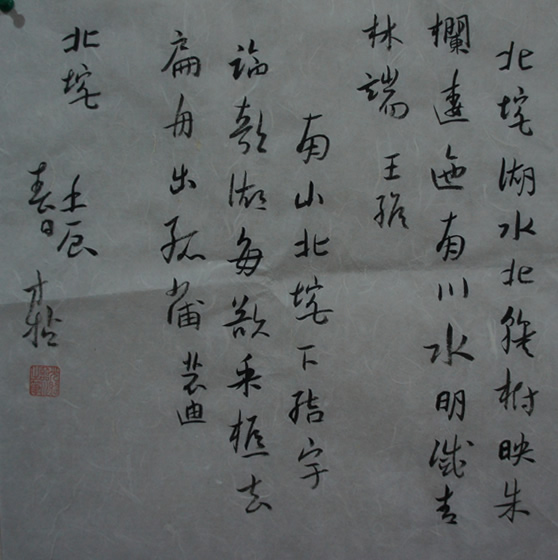 北垞湖水北雜樹映朱
欄逶迤南川水明滅青
林端 王維
南山北垞下結宇
臨欹湖每欲采樵去
扁舟出菰蒲 裴迪
北垞
壬辰
春日